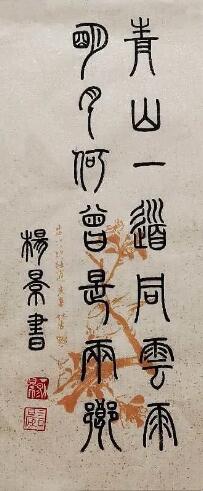 青山一道同雲雨
明月何曾是兩鄉
楊景書